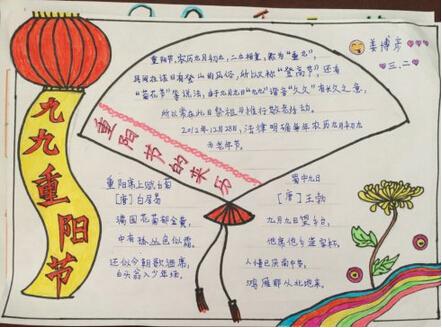 九九重阳节
姜博
三.二
重阳节的来历
重阳节,农历九月初九,二九相重,称为"重九",
民间在该日有登山的风俗,所以又称"登高节",还有
"菊花节"等说法,由于九月九日"九九"谐音"久久"有长久之意,
所以常在此日祭祖与推行敬老活动。
2012年12月28日,法律明确每年农历九月初九
为老年节。
重阳席上赋白菊
[唐]白居易
满园花菊郁金黄,
中有孤丛色似霜。
还似今朝歌酒席,
白头翁入少年场。
蜀中九日
[唐]王勃
九月九日望乡台,
他席他乡送客杯。
人情已厌南中苦,
鸿雁那从北地来。